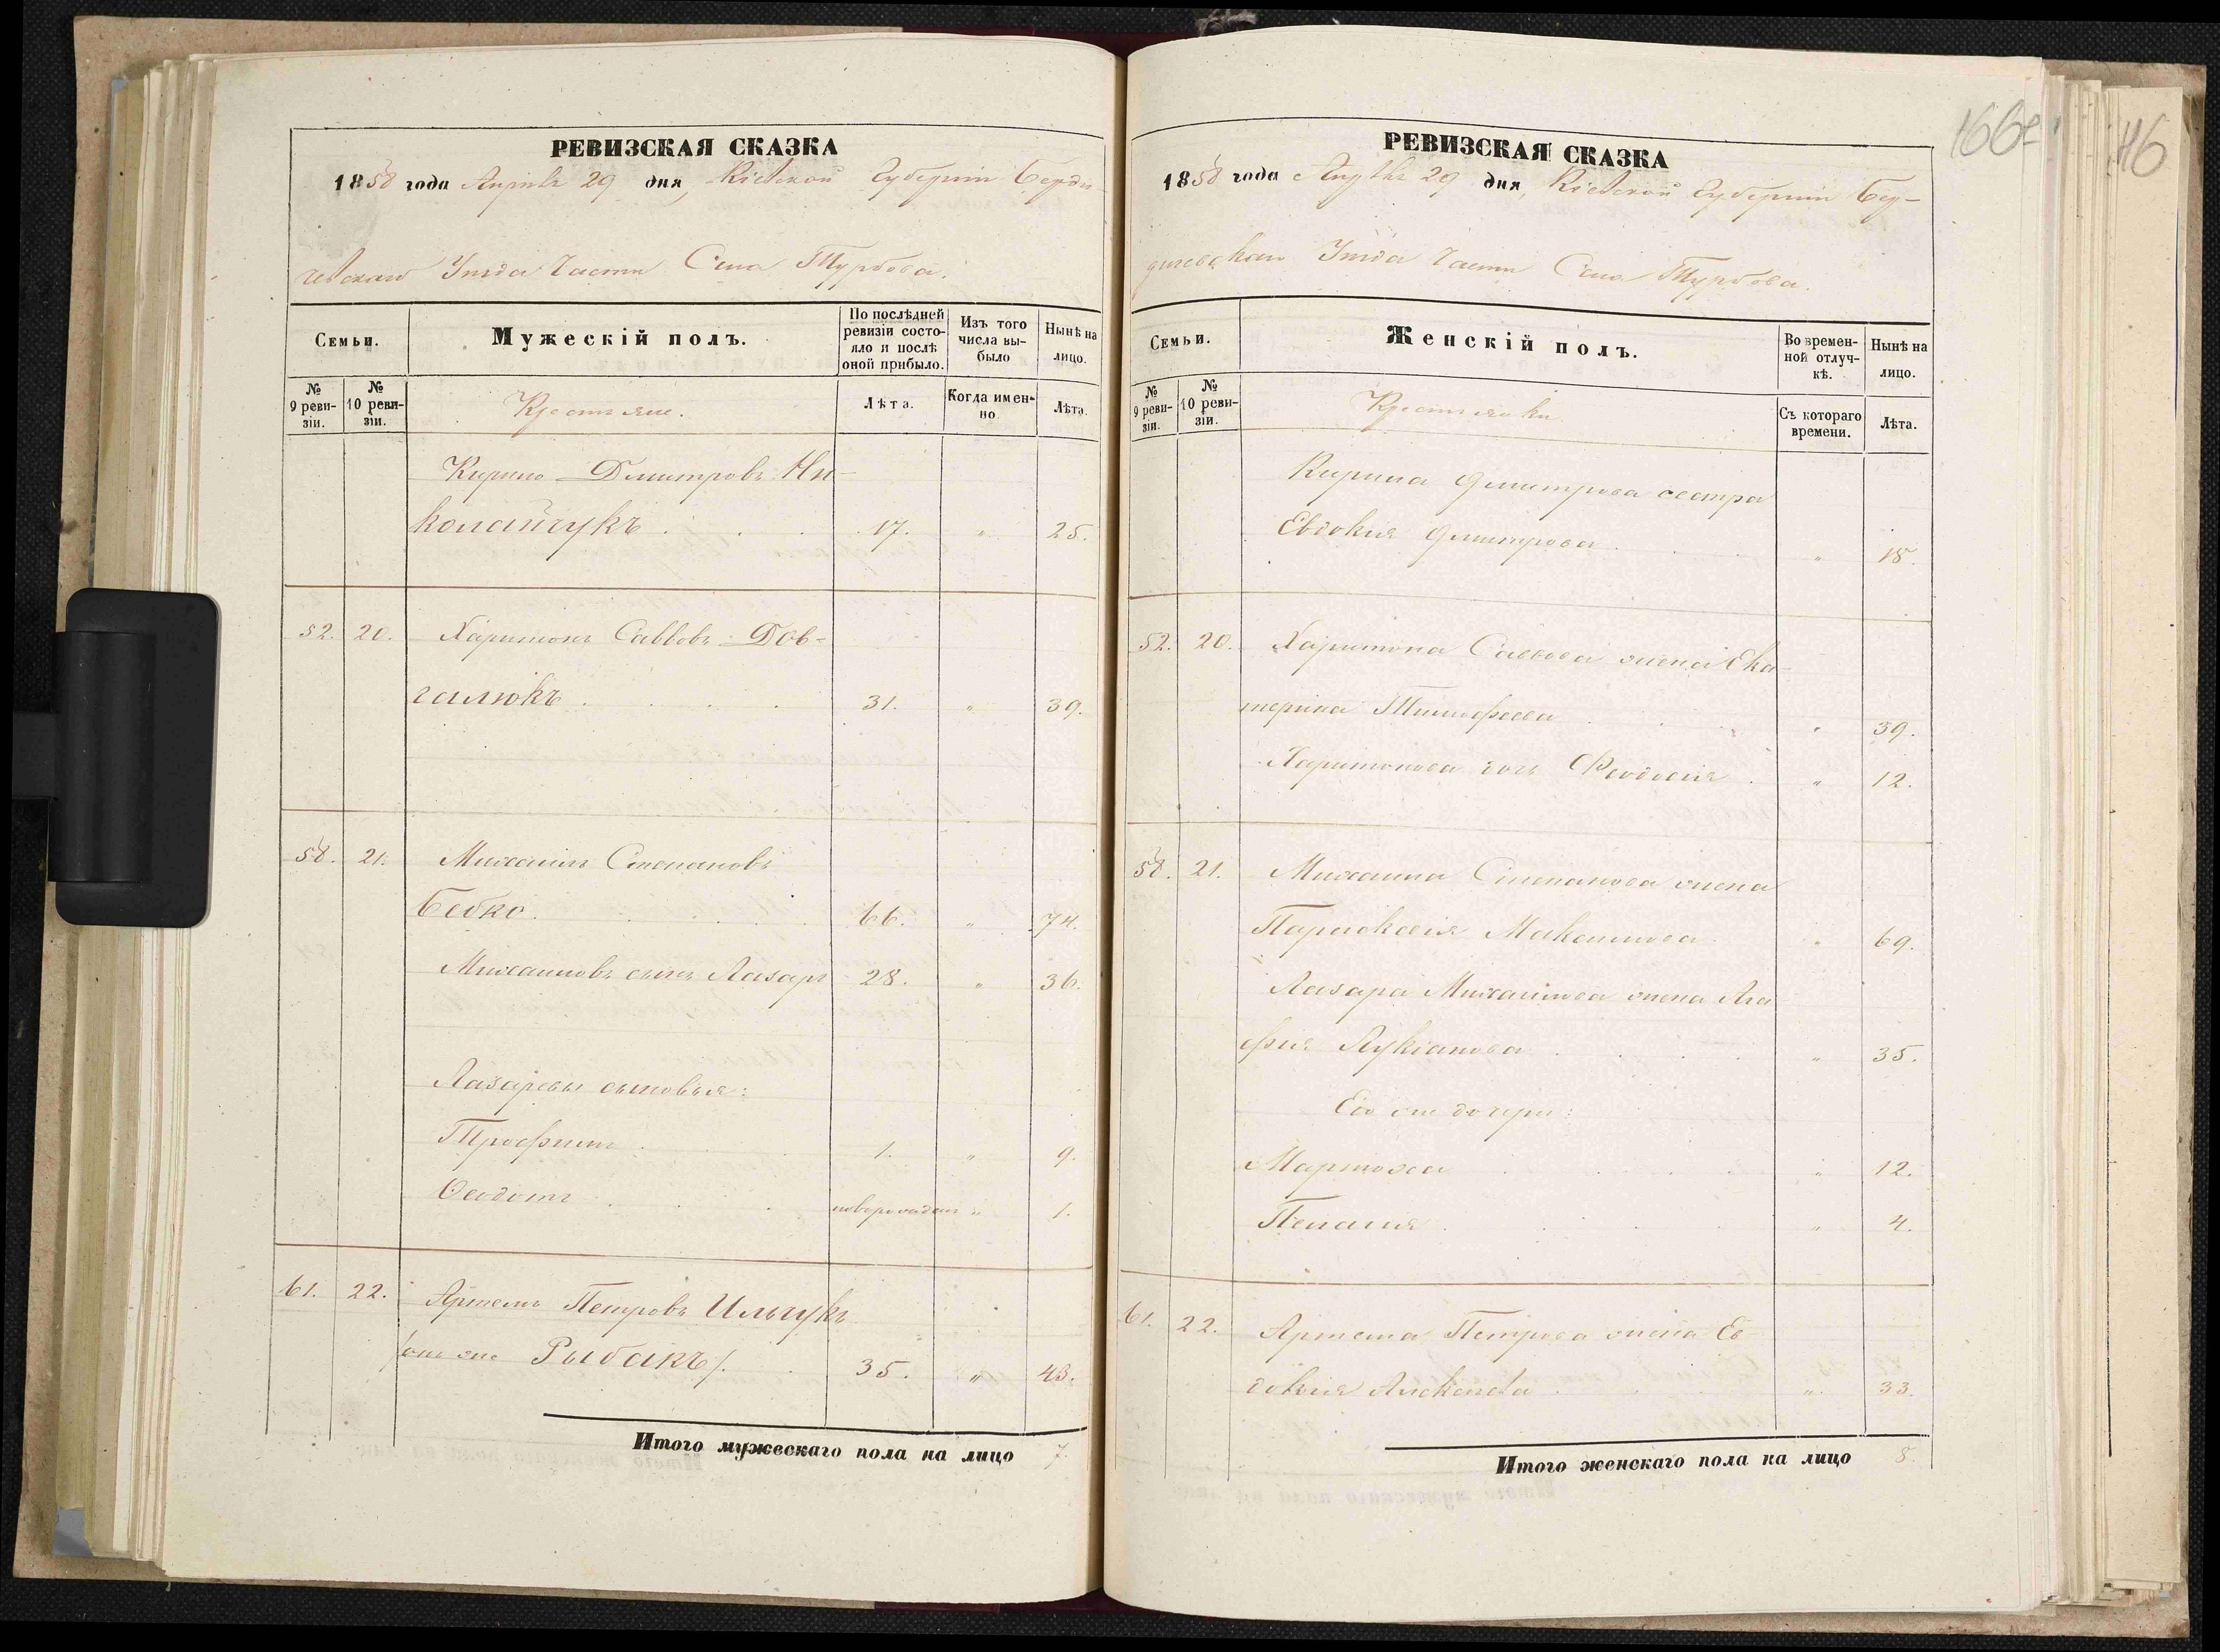 РЕВИЗСКАЯ СКАЗКА
1858 года Апрѣля 29 дня, Кіевской Губерніи Берди-
чевскаго Уѣзда Части Села Турбова.
Семьи.
Мужескій полъ.
По послѣдней ревизіи состояло и послѣ оной прибыло.
Изъ того числа выбыло
Нынѣ на лицо.
№ 9 ревизіи.
№ 10 ревизіи.
Крестьяне.
Лѣта.
Когда именно
Лѣта.
Кирило Дмитровъ Ни-
колайчукъ . . . 17. " 25.
52. 20. Харитонъ Саввовъ Дов-
галюкъ . . . . 31. " 39.
58. 21. Михаилъ Степановъ
Бебко. . . . . 66. " 74.
Михаиловъ сынъ Лазарь 28. " 36.
Лазаревы сыновья:
Трофимъ . . . 1. " 9.
Ѳеодотъ . . . новорожден " 1.
61. 22. Артемъ Петровъ Ильчукъ
/онъ же Рыбакъ/. . 35. " 43.
Итого мужескаго пола на лицо 7.
166
РЕВИЗСКАЯ СКАЗКА
1858 года Апрѣля 29 дня, Кіевской Губерніи Бер-
дичевскаго Уѣзда Части Села Турбова.
Семьи.
Женскій полъ.
Во временной отлучкѣ.
Нынѣ на лицо.
№ 9 ревизіи.
№ 10 ревизіи.
Крестьянки
Съ котораго времени.
Лѣта.
Кирила Дмитрова сестра
Евдокія Дмитрова . . . " 18.
52. 20. Харитона Саввова жена Ека-
терина Тимофеева . . . " 39.
Харитонова дочь Феодосія . " 12.
58. 21. Михаила Степанова жена
Параскевія Максимова . " 69.
Лазара Михайлова жена Ага
фія Лукіанова . . . . " 35.
Его же дочери:
Мартоха . . . . " 12.
Пелагія . . . . " 4.
61. 22. Артема Петрова жена Ев-
докія Алексѣева . . . . " 33.
Итого женскаго пола на лицо 8.
46